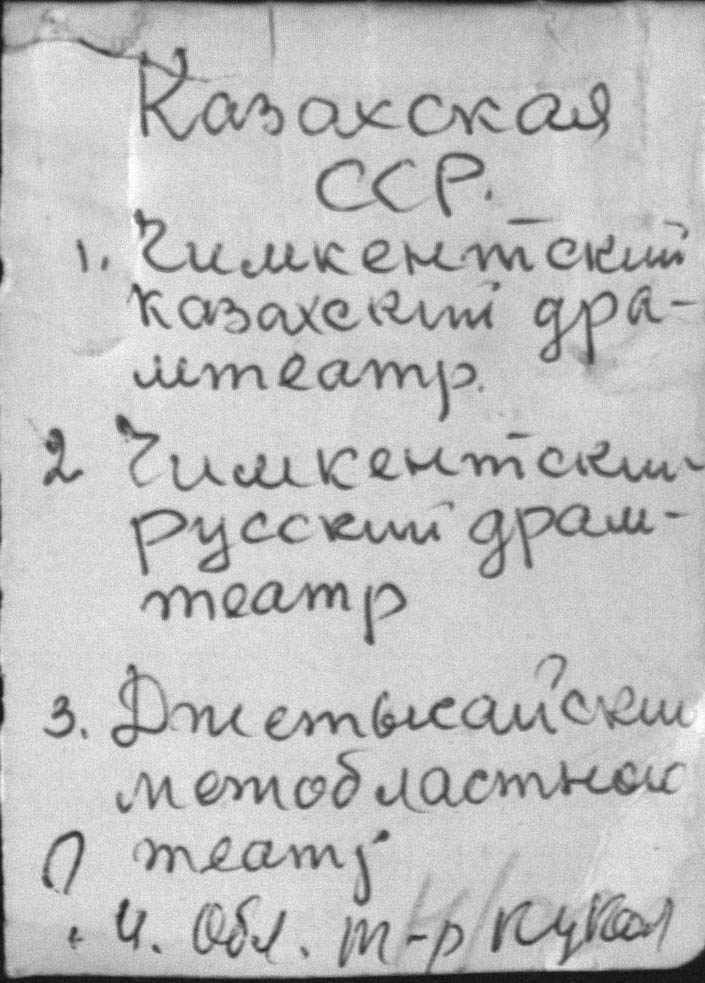 Казахская
ССР.
1. Чимкентский
казахский дра-
мтеатр.
2 Чимкентский
русский драм-
театр
3. Джетысайски
межобластной
театр
4. Обл. т-р кукол